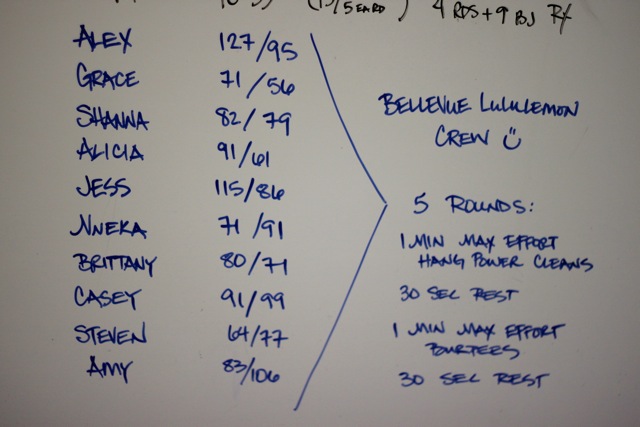 4 RDS + 9 BJ RX
ALEX 127/95
GRACE 71/56
SHANNA 82/79
ALICIA 91/61
JESS 115/86
NNEKA 71/91
BRITTANY 80/71
CASEY 91/99
STEVEN 64/77
AMY 83/106
BELLEVUE LULULEMON
CREW
5 ROUNDS:
1 MIN MAX EFFORT
HANG POWER CLEANS
30 SEC REST
1 MIN MAX EFFORT
BURPEES
30 SEC REST